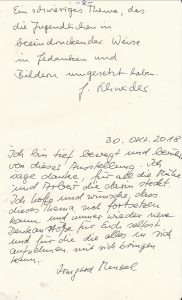 Ein schwieriges Thema, das
die Jugendlichen in
beeindruckender Weise
in Gedanken und
Bildern umgesetzt haben.
30. OKT. 2018
Ich bin tief bewegt und
von dieser Ausstellung. Ich
sage danke, für all die Mühe
und Arbeit die darin steckt.
Ich hoffe und wünsche, dass
dieses Thema sich fortsetzen
kann und immer wieder neue
für Euch selbst
und für die die alles in sich
aufnehmen mit sich bringen
kann.